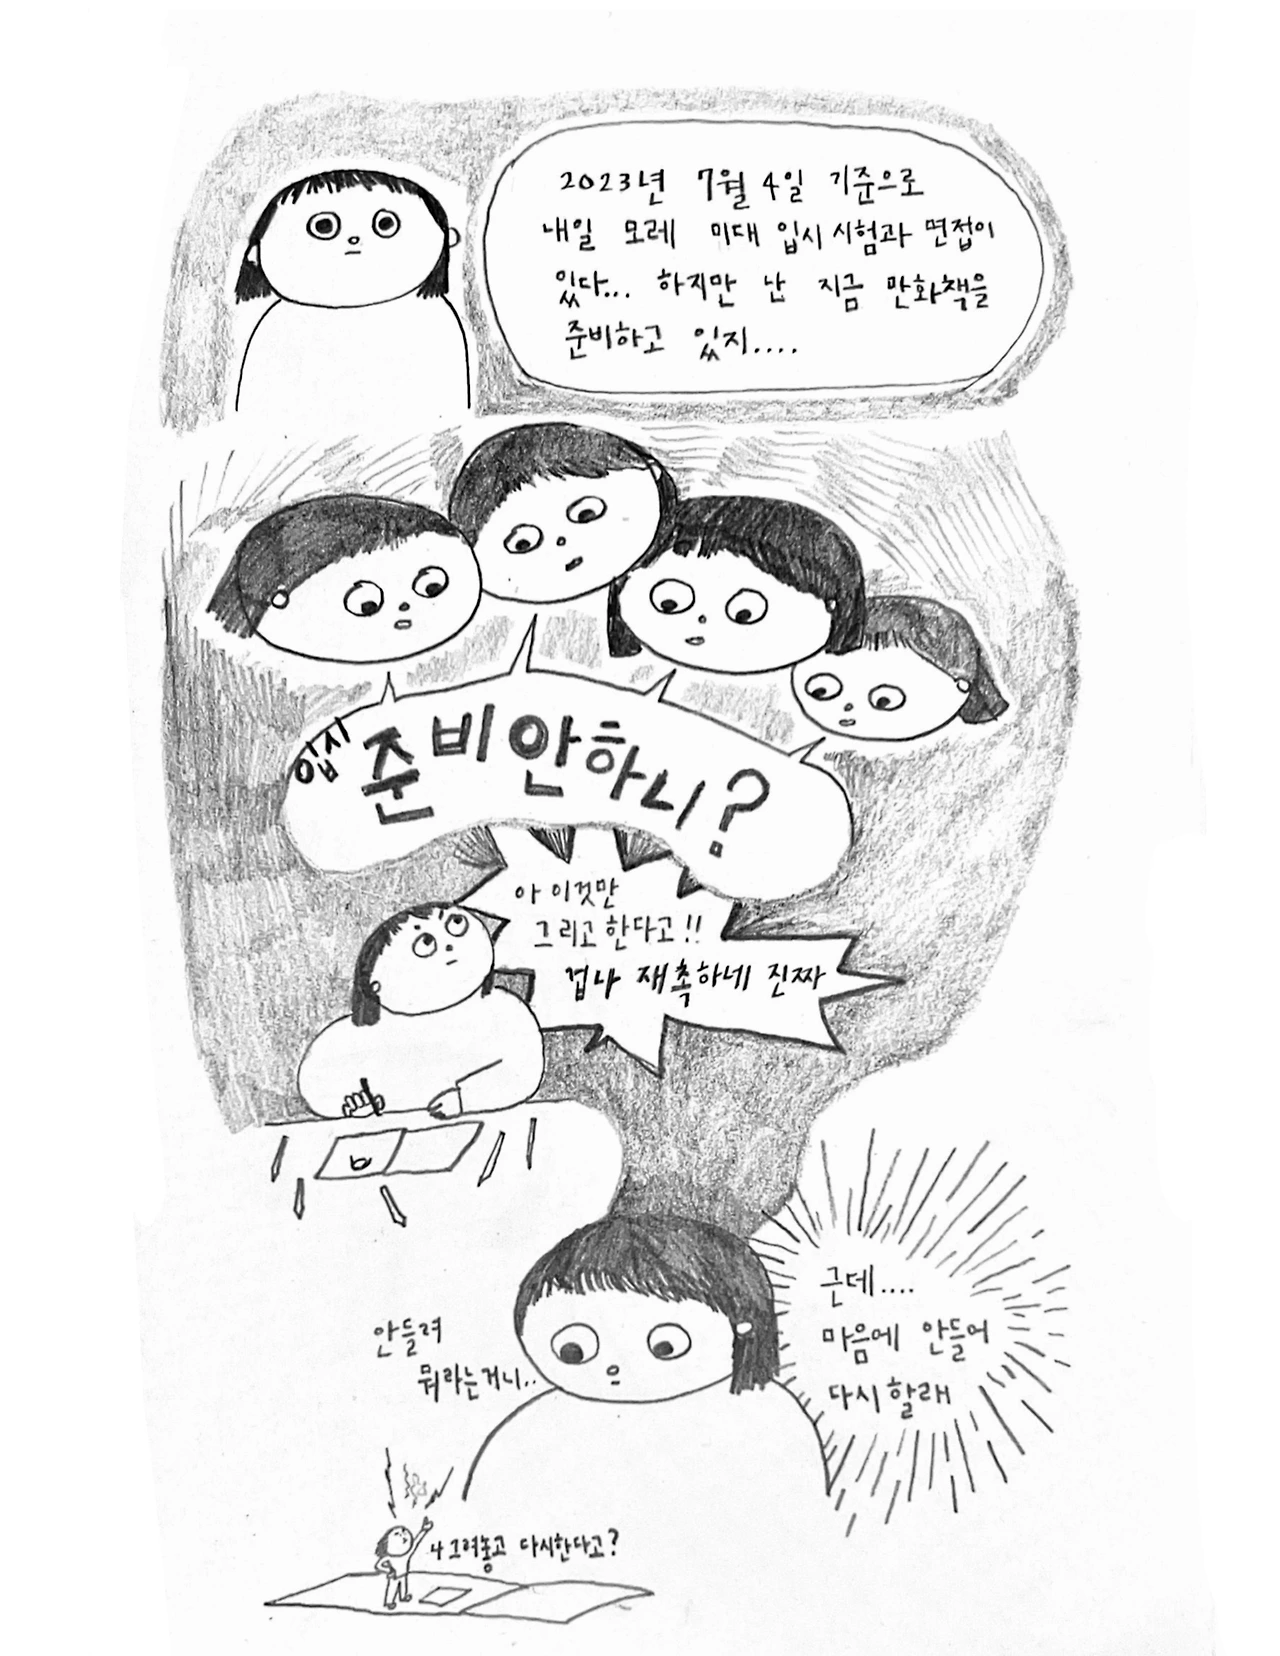 2023년 7월 4일 기준으로
내일 모레 미대 입시 시험과 면접이
있다... 하지만 난 지금 만화책을
준비하고 있지....
입시 준비안하니?
아 이것만
그리고 한다고!!
겁나 재촉하네 진짜
근데....
마음에 안들어
다시 할래
안들려
뭐라는거니..
나 그려놓고 다시한다고?